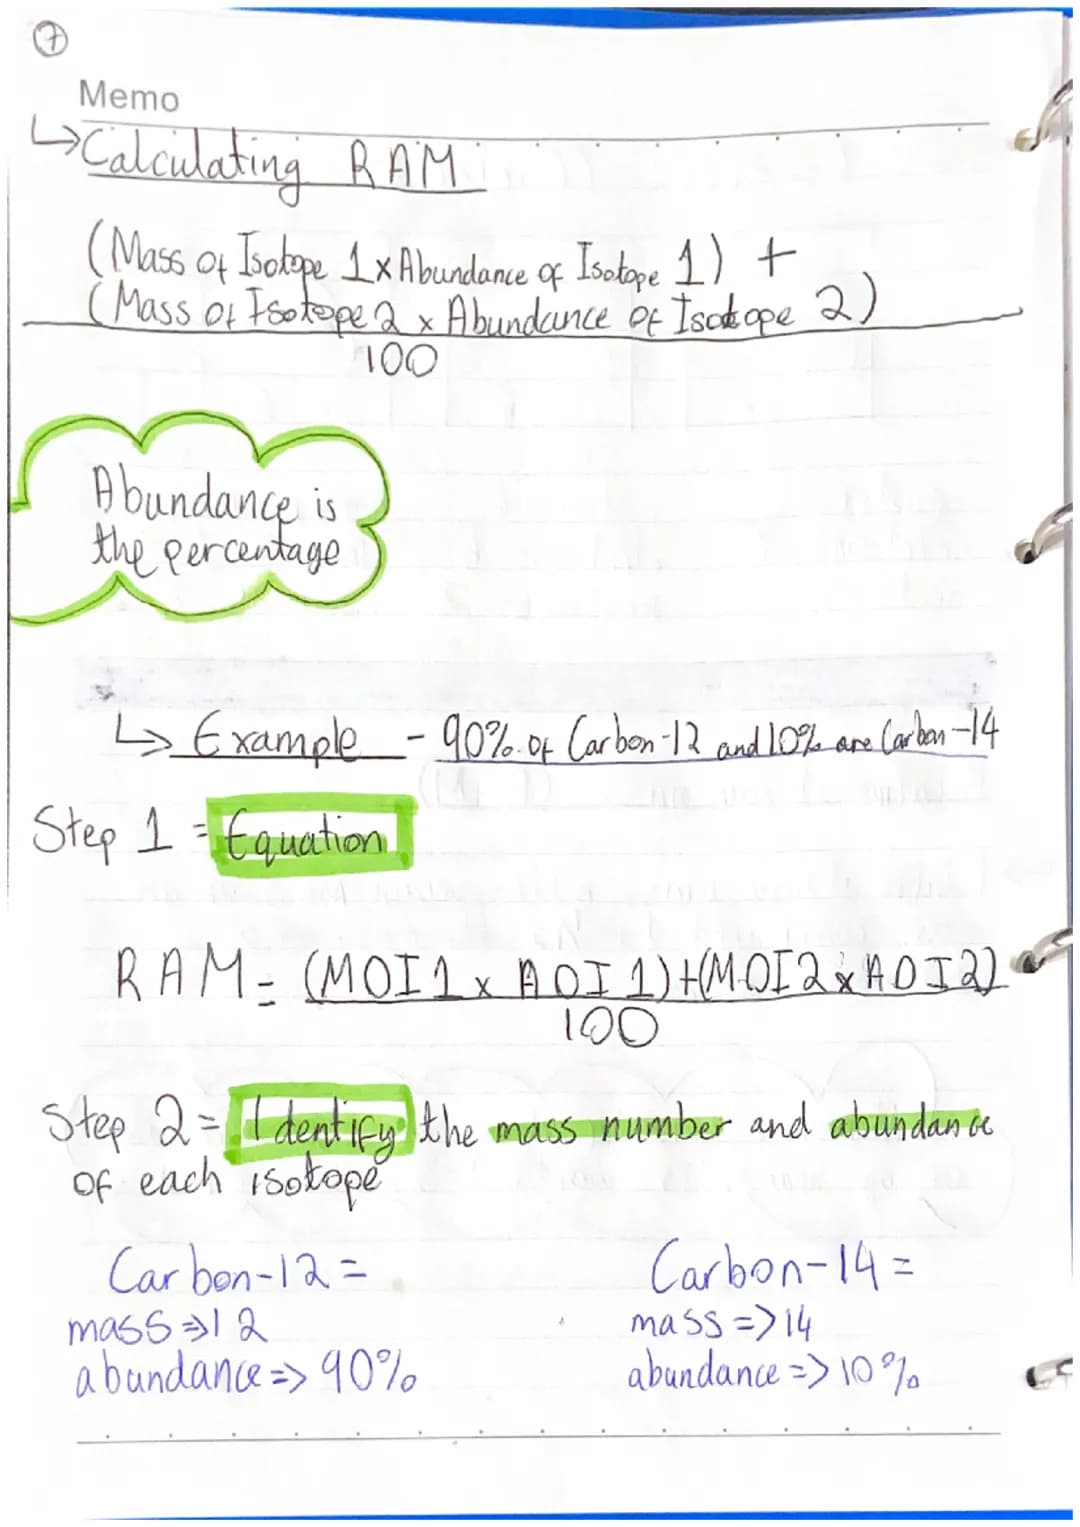 7
Memo
↳Calculating RAM
(Mass of Isotope 1 x Abundance of Isotope 1) +
(Mass of Isotope 2 x Abundance of Isotope 2)
100
Abundance is
the percentage
↳ Example - 90% of Carbon-12 and 10% are Carbon-14
Step 1 = Equation
RAM = (MOI1 x AOI1)+(MOI2 x AOI2)
100
Step 2 = Identify the mass number and abundance
of each isotope
Carbon-12 = Carbon-14 =
mass => 12 mass => 14
abundance => 90% abundance => 10%